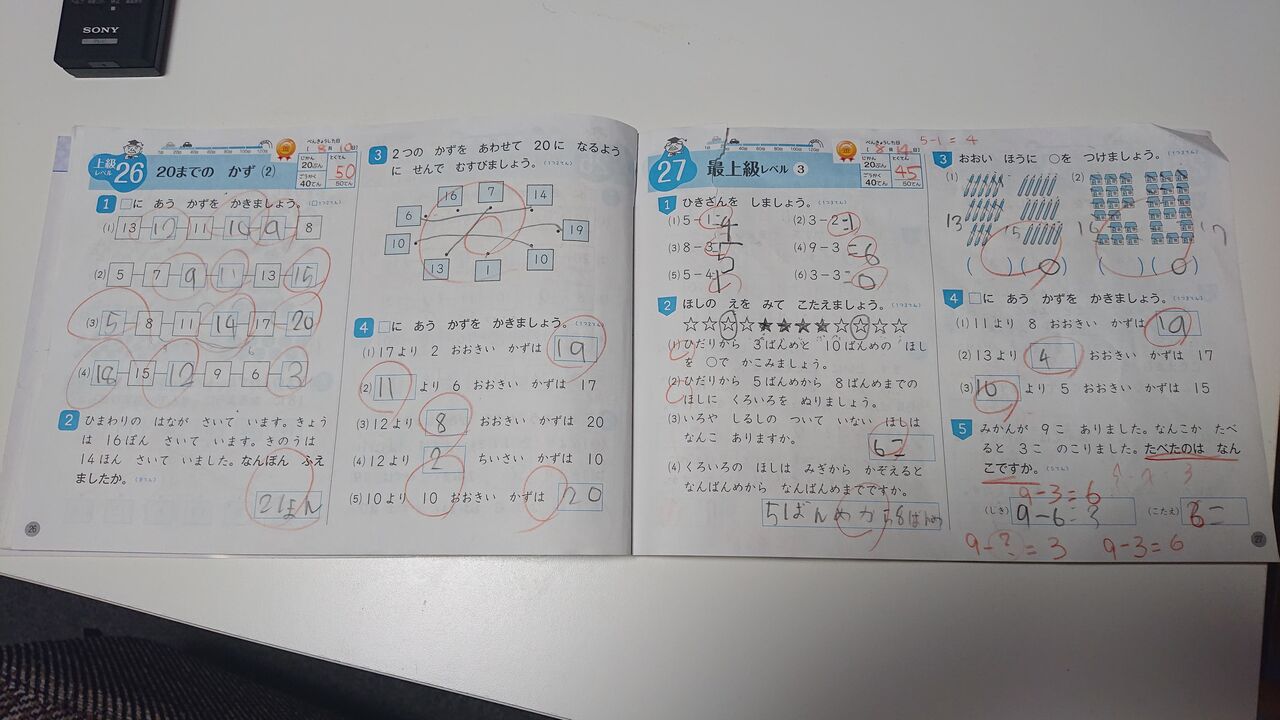 SONY
上級
レベル
26
20までの かず (2)
べんきょうした日
じかん
20ぷん
とくてん
50
ごうかく
40てん
50てん
1 □に あう かずを かきましょう。
(1) 13 12 11 10 9 8
(2) 5 7 9 11 13 15
(3) 5 8 11 14 17 20
(4) 18 15 12 9 6 3
2 ひまわりの はなが さいて います。きょう
は 16ぽん さいて います。きのうは
14ほん さいて いました。なんぼん ふえ
ましたか。
2ほん
26
3 2つの かずを あわせて 20に なるよう
に せんで むすびましょう。
16 7 14
6
19
10
13 1 10
4 □に あう かずを かきましょう。
(1) 17より 2 おおきい かずは 19
(2) 11 より 6 おおきい かずは 17
(3) 12より 8 おおきい かずは 20
(4) 12より 2 ちいさい かずは 10
(5) 10より 10 おおきい かずは 20
27
最上級レベル 3
べんきょうした日
8月14日
じかん
20ぷん
とくてん
45
ごうかく
40てん
50てん
5-1=4
1 ひきざんを しましょう。
(1) 5-1=4
(2) 3-2=1
(3) 8-3=5
(4) 9-3=6
(5) 5-4=1
(6) 3-3=0
2 ほしの えを みて こたえましょう。
(1) ひだりから 3ばんめと 10ばんめの ほし
を ○で かこみましょう。
(2) ひだりから 5ばんめから 8ばんめまでの
ほしに くろいろを ぬりましょう。
(3) いろや しるしの ついて いない ほしは
なんこ ありますか。
6こ
(4) くろいろの ほしは みぎから かぞえると
なんばんめから なんばんめまでですか。
5ばんめから8ばんめ
3 おおい ほうに ○を つけましょう。
(1)
(2)
13
15
16
17
( ) (○) ( ) (○)
4 □に あう かずを かきましょう。
(1) 11より 8 おおきい かずは 19
(2) 13より 4 おおきい かずは 17
(3) 10 より 5 おおきい かずは 15
5 みかんが 9こ ありました。なんこか たべ
ると 3こ のこりました。たべたのは なん
こですか。
9-3=6
(しき) 9-6=3
(こたえ)
9-?=3 9-3=6
27